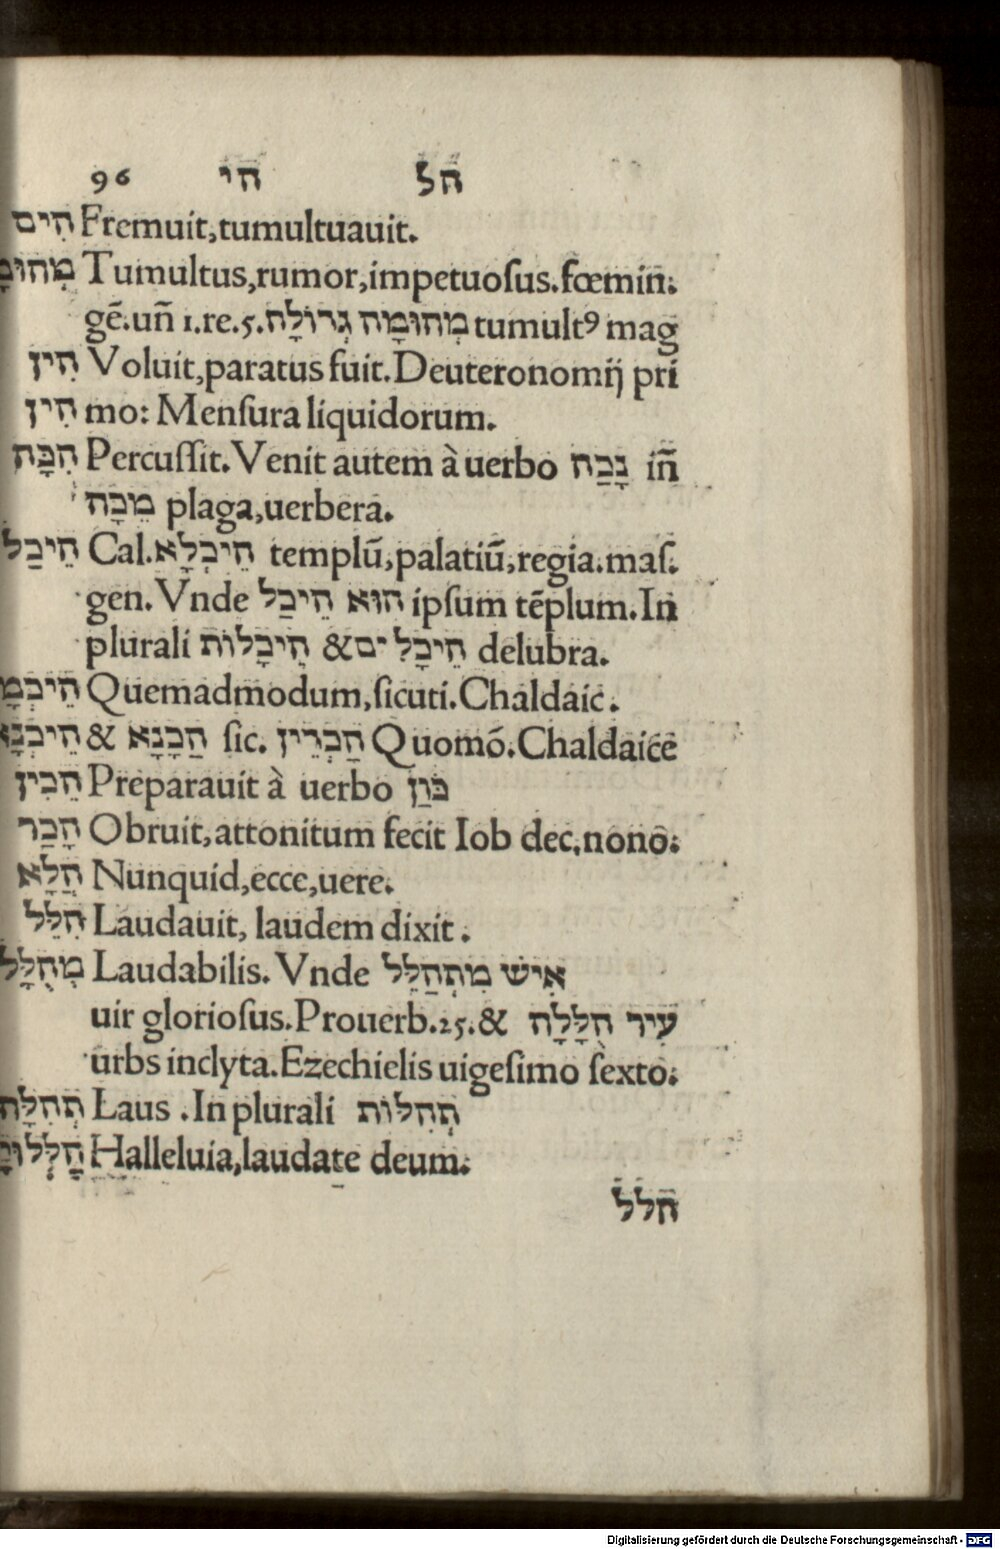 96 הי הל
הִים Fremuit,tumultuauit.
Tumultus,rumor,impetuoſus.fœmin̄.
gē.un̄ 1.re.5.מְהוּמָה גְדוֹלָה tumultꝰ mag
הִין Voluit,paratus fuit.Deuteronomij pri
הִין mo: Menſura liquidorum.
הִכָּה Percuſſit.Venit autem à uerbo נָכַה in̄
מַכָּה plaga,uerbera.
הֵיכַל Cal.הֵיכְלָא templū,palatiū,regia.maſ.
gen. Vnde הוּא הֵיכַל ipſum tēplum.In
plurali הֵיכָלוֹת & הֵיכָלִים delubra.
Quemadmodum,ſicuti.Chaldaic̄.
& הַכָנָא ſic. הַכְדֵין Quomō.Chaldaicē
הֵכִין Preparauit à uerbo כּוּן
הָכַר Obruit,attonitum fecit Iob dec,nono.
הֲלָא Nunquid,ecce,uere.
הִלֵּל Laudauit, laudem dixit.
מְהֻלָּל Laudabilis. Vnde אִישׁ מִתְהַלֵּל
uir glorioſus.Prouerb.25.& עִיר הֻלָּלָה
urbs inclyta.Ezechielis uigeſimo ſexto.
תְהִלָּה Laus .In plurali תְּהִלּוֹת
Halleluia,laudate deum.
הלל
Digitalisierung gefördert durch die Deutsche Forschungsgemeinschaft - DFG